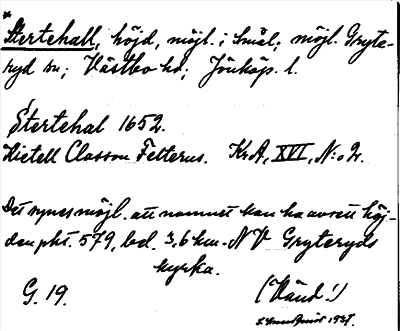 * Stertehall, höjd, möjl. i Smål.; möjl. Gryte-
ryd sn; Västbo hd; Jönköp. l.
Stertehal 1652.
Kietell Classon Felterus. KrA, XVI, N:o 2.
Det synes möjl. att namnet kan ha avsett höj-
den pkt. 579, bel. 3,6 km. NV Gryteryds
kyrka.
G. 19. (Vänd!)
1927.